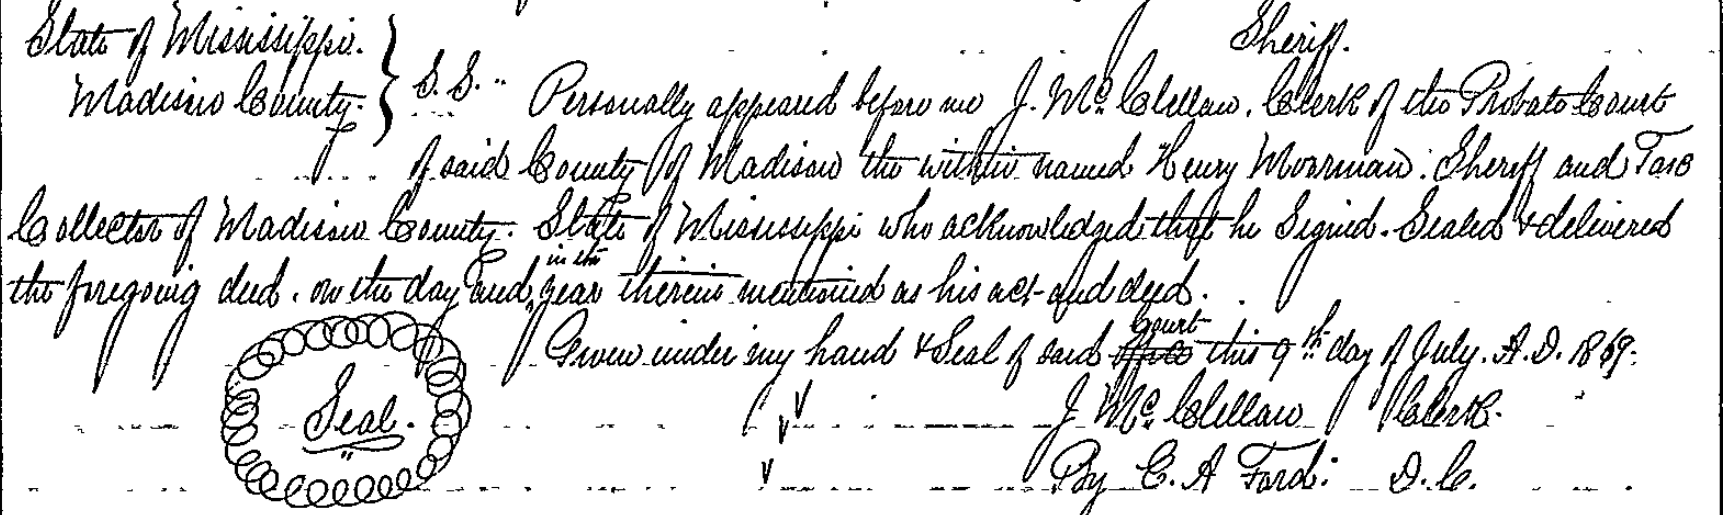 Sheriff.
State of Mississippi.
Madison County. } S.S. " Personally appeared before me J. Mc. Clellan. Clerk of the Probate Court
of said County of Madison the within named Henry Moorman. Sheriff and Tax
Collector of Madison County. State of Mississippi who acknowledged that he Signed. Sealed & delivered
in the
the foregoing deed. on the day and year therein mentioned as his act and deed.
Court
Given under my hand & Seal of said office this 9th day of July. A.D. 1869.
Seal.
J. Mc. Clellan Clerk.
By E. A Ford. D.C.